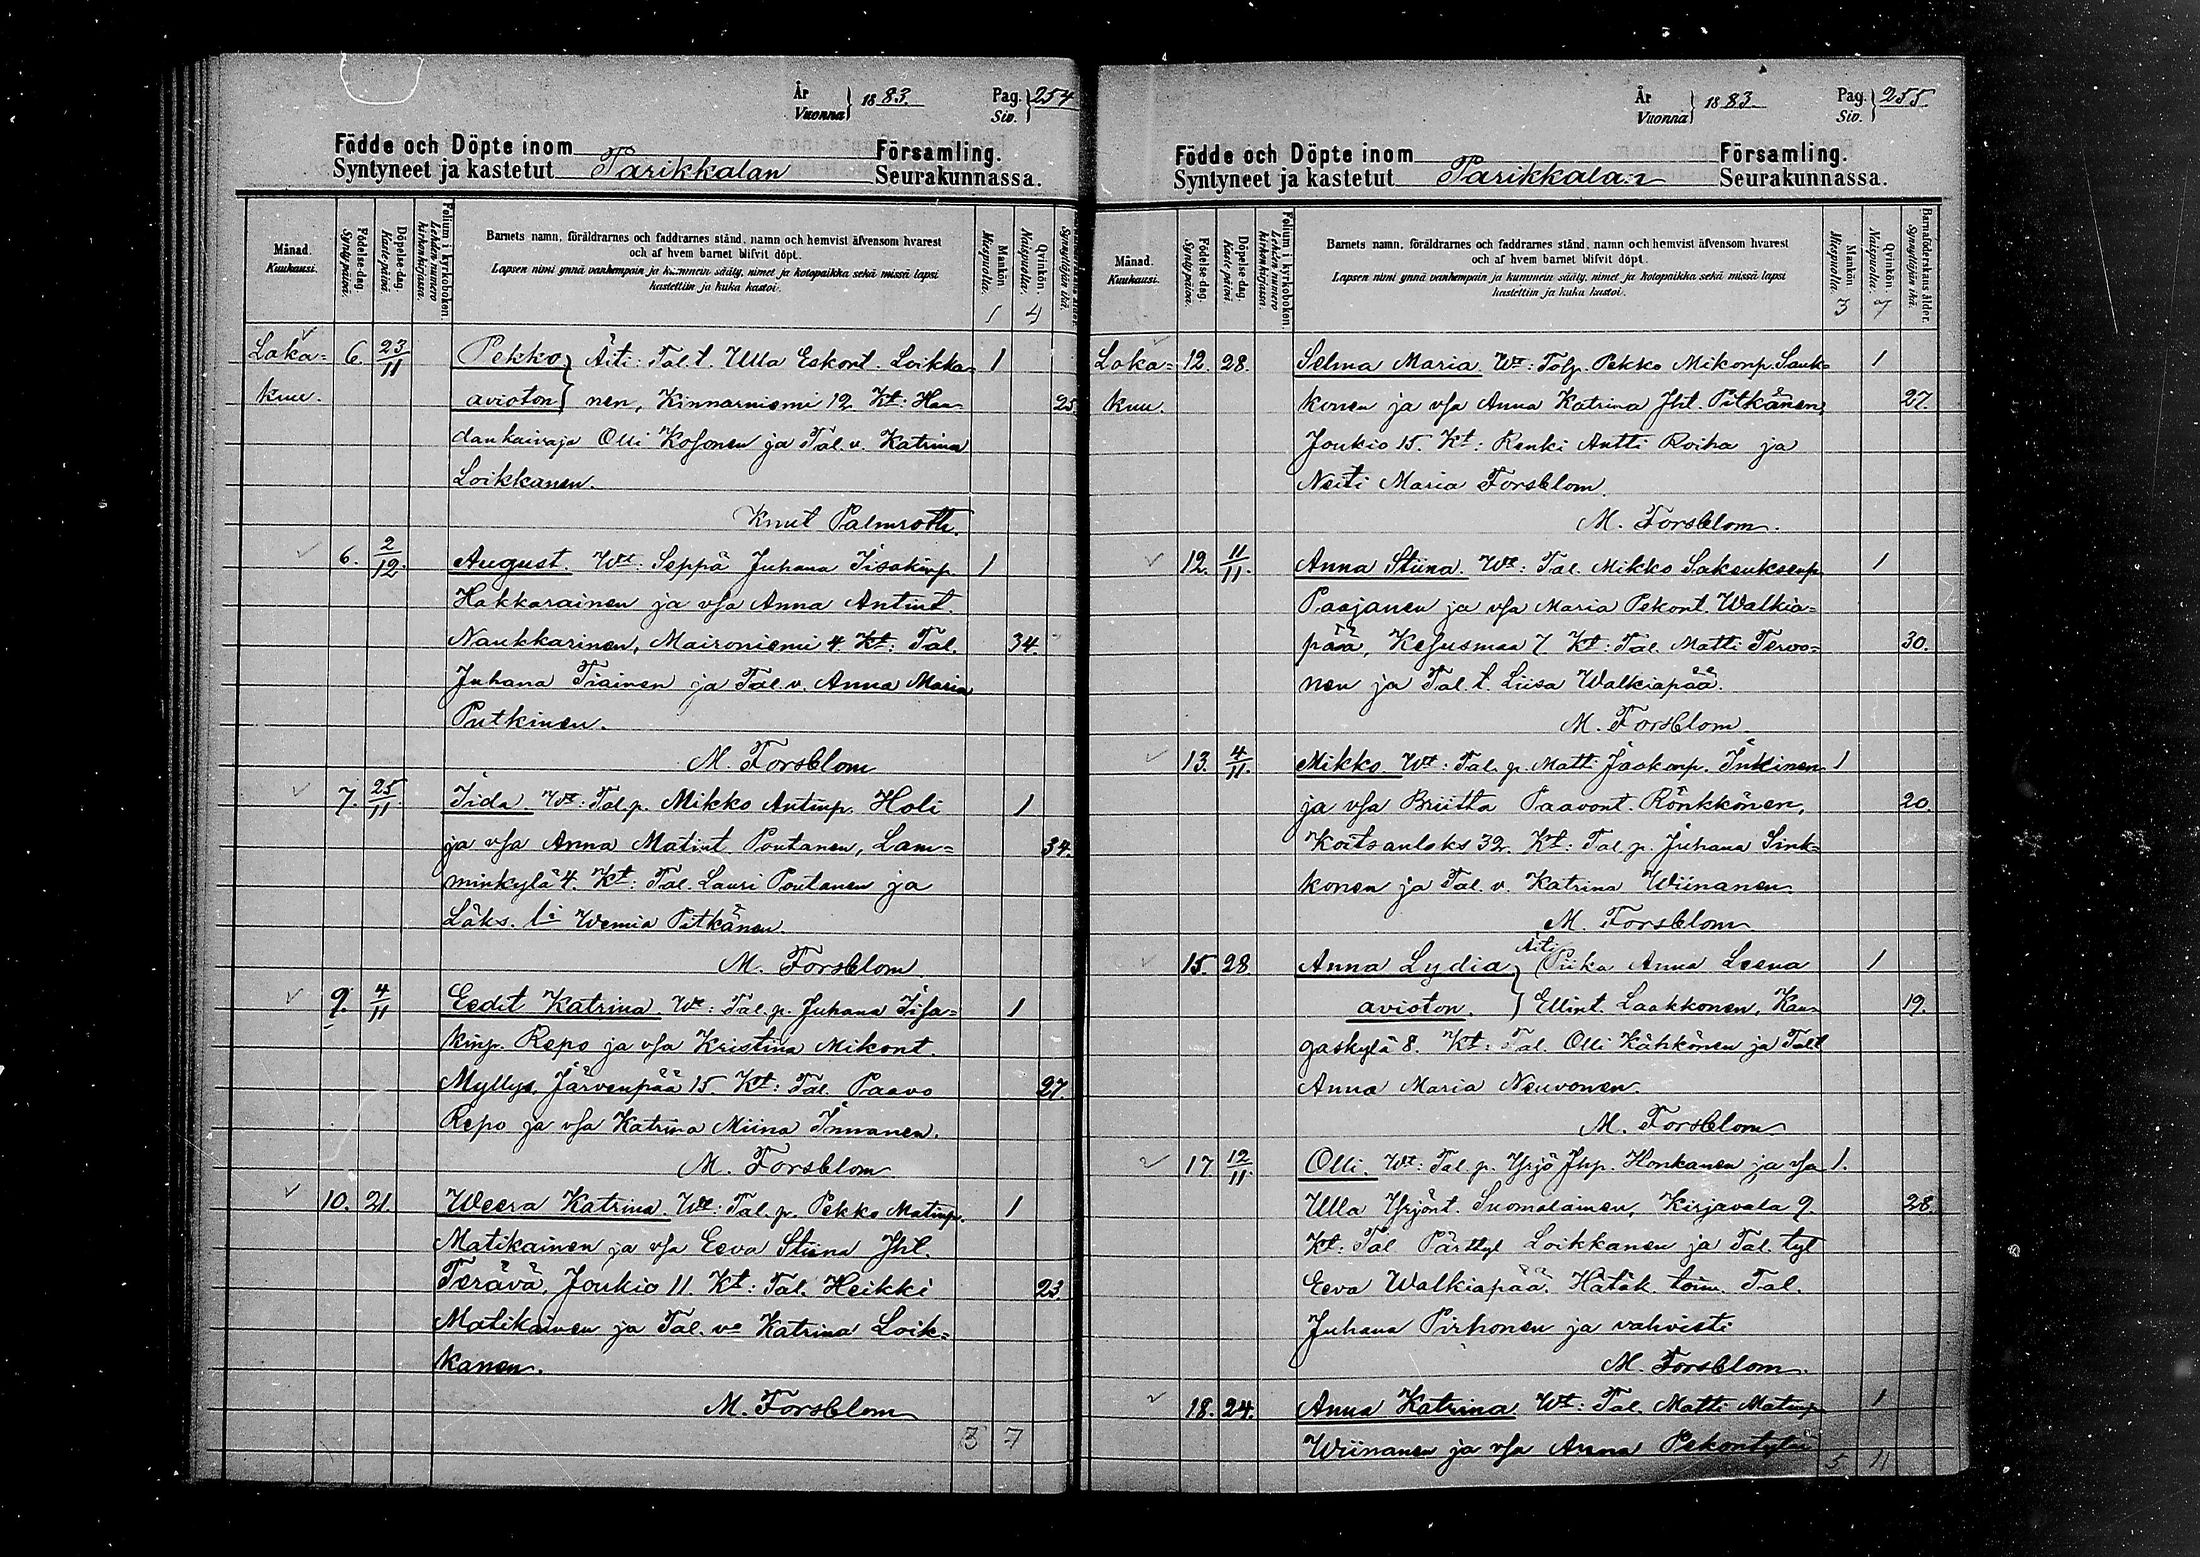 År Vuonna } 1883. Pag. Siv. } 254
Födde och Döpte inom Församling.
Syntyneet ja kastetut Parikkalan Seurakunnassa.
Månad. Kuukausi.
Födelse-dag. Syntypäivä.
Döpelse-dag. Kastepäivä.
Folium i kyrkoboken. Lehden numero kirkonkirjassa.
Barnets namn, föräldrarnes och faddrarnes stånd, namn och hemvist äfvensom hvarest
och af hvem barnet blifvit döpt.
Lapsen nimi ynnä vanhempain ja kummein sääty, nimet ja kotopaikka sekä missä lapsi
kastettiin ja kuka kastoi.
Mankön. Miespuolia.
Qvinkön. Naispuolia.
1 4
Loka= 6. 23/11 Pekko } Äiti: Tal. t. Ulla Eskont. Loikka= 1
kuu. avioton } nen, Kinnarniemi 12. Kt: Hau= 25
dankaivaja Olli Kosonen ja Tal. v. Katrina
Loikkanen.
Knut Palmroth.
6. 2/12. August. Wt: Seppä Juhana Iisakinp. 1
Hakkarainen ja vsa Anna Antint.
Naukkarinen, Maironiemi 4. Kt: Tal. 34.
Juhana Tiainen ja Tal. v. Anna Maria
Putkinen.
M. Forsblom
7. 25/11. Iida Wt: Tal. p. Mikko Antinp. Holi 1
ja vsa Anna Matint. Poutanen, Lam= 34.
minkylä 4. Kt: Tal. Lauri Poutanen ja
Läks. li Wemia Pitkänen.
M. Forsblom
9. 4/11 Eedit Katrina. Wt: Tal. p. Juhana Iisa= 1
kinp. Repo ja vsa Kristina Mikont.
Myllys, Järvenpää 15. Kt: Tal. Paavo 27.
Repo ja vsa Katrina Miina Innanen.
M. Forsblom
10. 21. Weera Katrina. Wt: Tal. p. Pekko Matinp. 1
Matikainen ja vsa Eeva Stiina Jht.
Terävä, Joukio 11. Kt: Tal. Heikki 23.
Matikainen ja Tal. vo Katrina Loik=
kanen.
M. Forsblom
3 7
År Vuonna } 1883. Pag. Siv. } 255.
Födde och Döpte inom Församling.
Syntyneet ja kastetut Parikkalan Seurakunnassa.
Månad. Kuukausi.
Födelse-dag. Syntypäivä.
Döpelse-dag. Kastepäivä.
Folium i kyrkoboken. Lehden numero kirkonkirjassa.
Barnets namn, föräldrarnes och faddrarnes stånd, namn och hemvist äfvensom hvarest
och af hvem barnet blifvit döpt.
Lapsen nimi ynnä vanhempain ja kummein sääty, nimet ja kotopaikka sekä missä lapsi
kastettiin ja kuka kastoi.
Mankön. Miespuolia.
Qvinkön. Naispuolia.
Barnaföderskans ålder. Synnyttäjän ikä.
3 7
Loka= 12. 28. Selma Maria. Wt: Tölp. Pekko Mikonp. Sauk= 1
kuu. konen ja vsa Anna Katrina Jht. Pitkänen, 27.
Joukio 15. Kt: Renki Antti Roiha ja
Neiti Maria Forsblom.
M. Forsblom.
12. 11/11. Anna Stiina. Wt: Tal. Mikko Sakeuksenp. 1
Paajanen ja vsa Maria Pekont. Walkia=
pää, Kesusmaa 7 Kt: Tal. Matti Tervo= 30.
nen ja Tal. t. Liisa Walkiapää.
M. Forsblom
13. 4/11. Mikko. Wt: Tal. p. Matti Jaakonp. Inkinen 1
ja vsa Briitta Paavont. Rönkkönen, 20.
Koitsanlaks 32. Kt: Tal. p. Juhana Sink=
konen ja Tal. v. Katrina Wiinanen.
M. Forsblom
15. 28. Anna Lydia } Äiti: Piika Anna Leena 1
avioton. } Ellint. Laakkonen, Kan= 19.
gaskylä 8. Kt: Tal. Olli Kähkönen ja Tal t
Anna Maria Neuvonen.
M. Forsblom
17. 12/11. Olli. Wt: Tal. p. Yrjö Jhp. Honkanen ja vsa 1.
Ulla Yrjönt. Suomalainen, Kirjavala 9. 28.
Kt: Tal Pärttyl Loikkanen ja Tal. tyt
Eeva Walkiapää. Hätäk. toim. Tal.
Juhana Pirhonen ja vahvisti
M. Forsblom.
18. 24. Anna Katrina. Wt: Tal. Matti Matinp. 1
Wiinanen ja vsa Anna Pekontytär
5 11